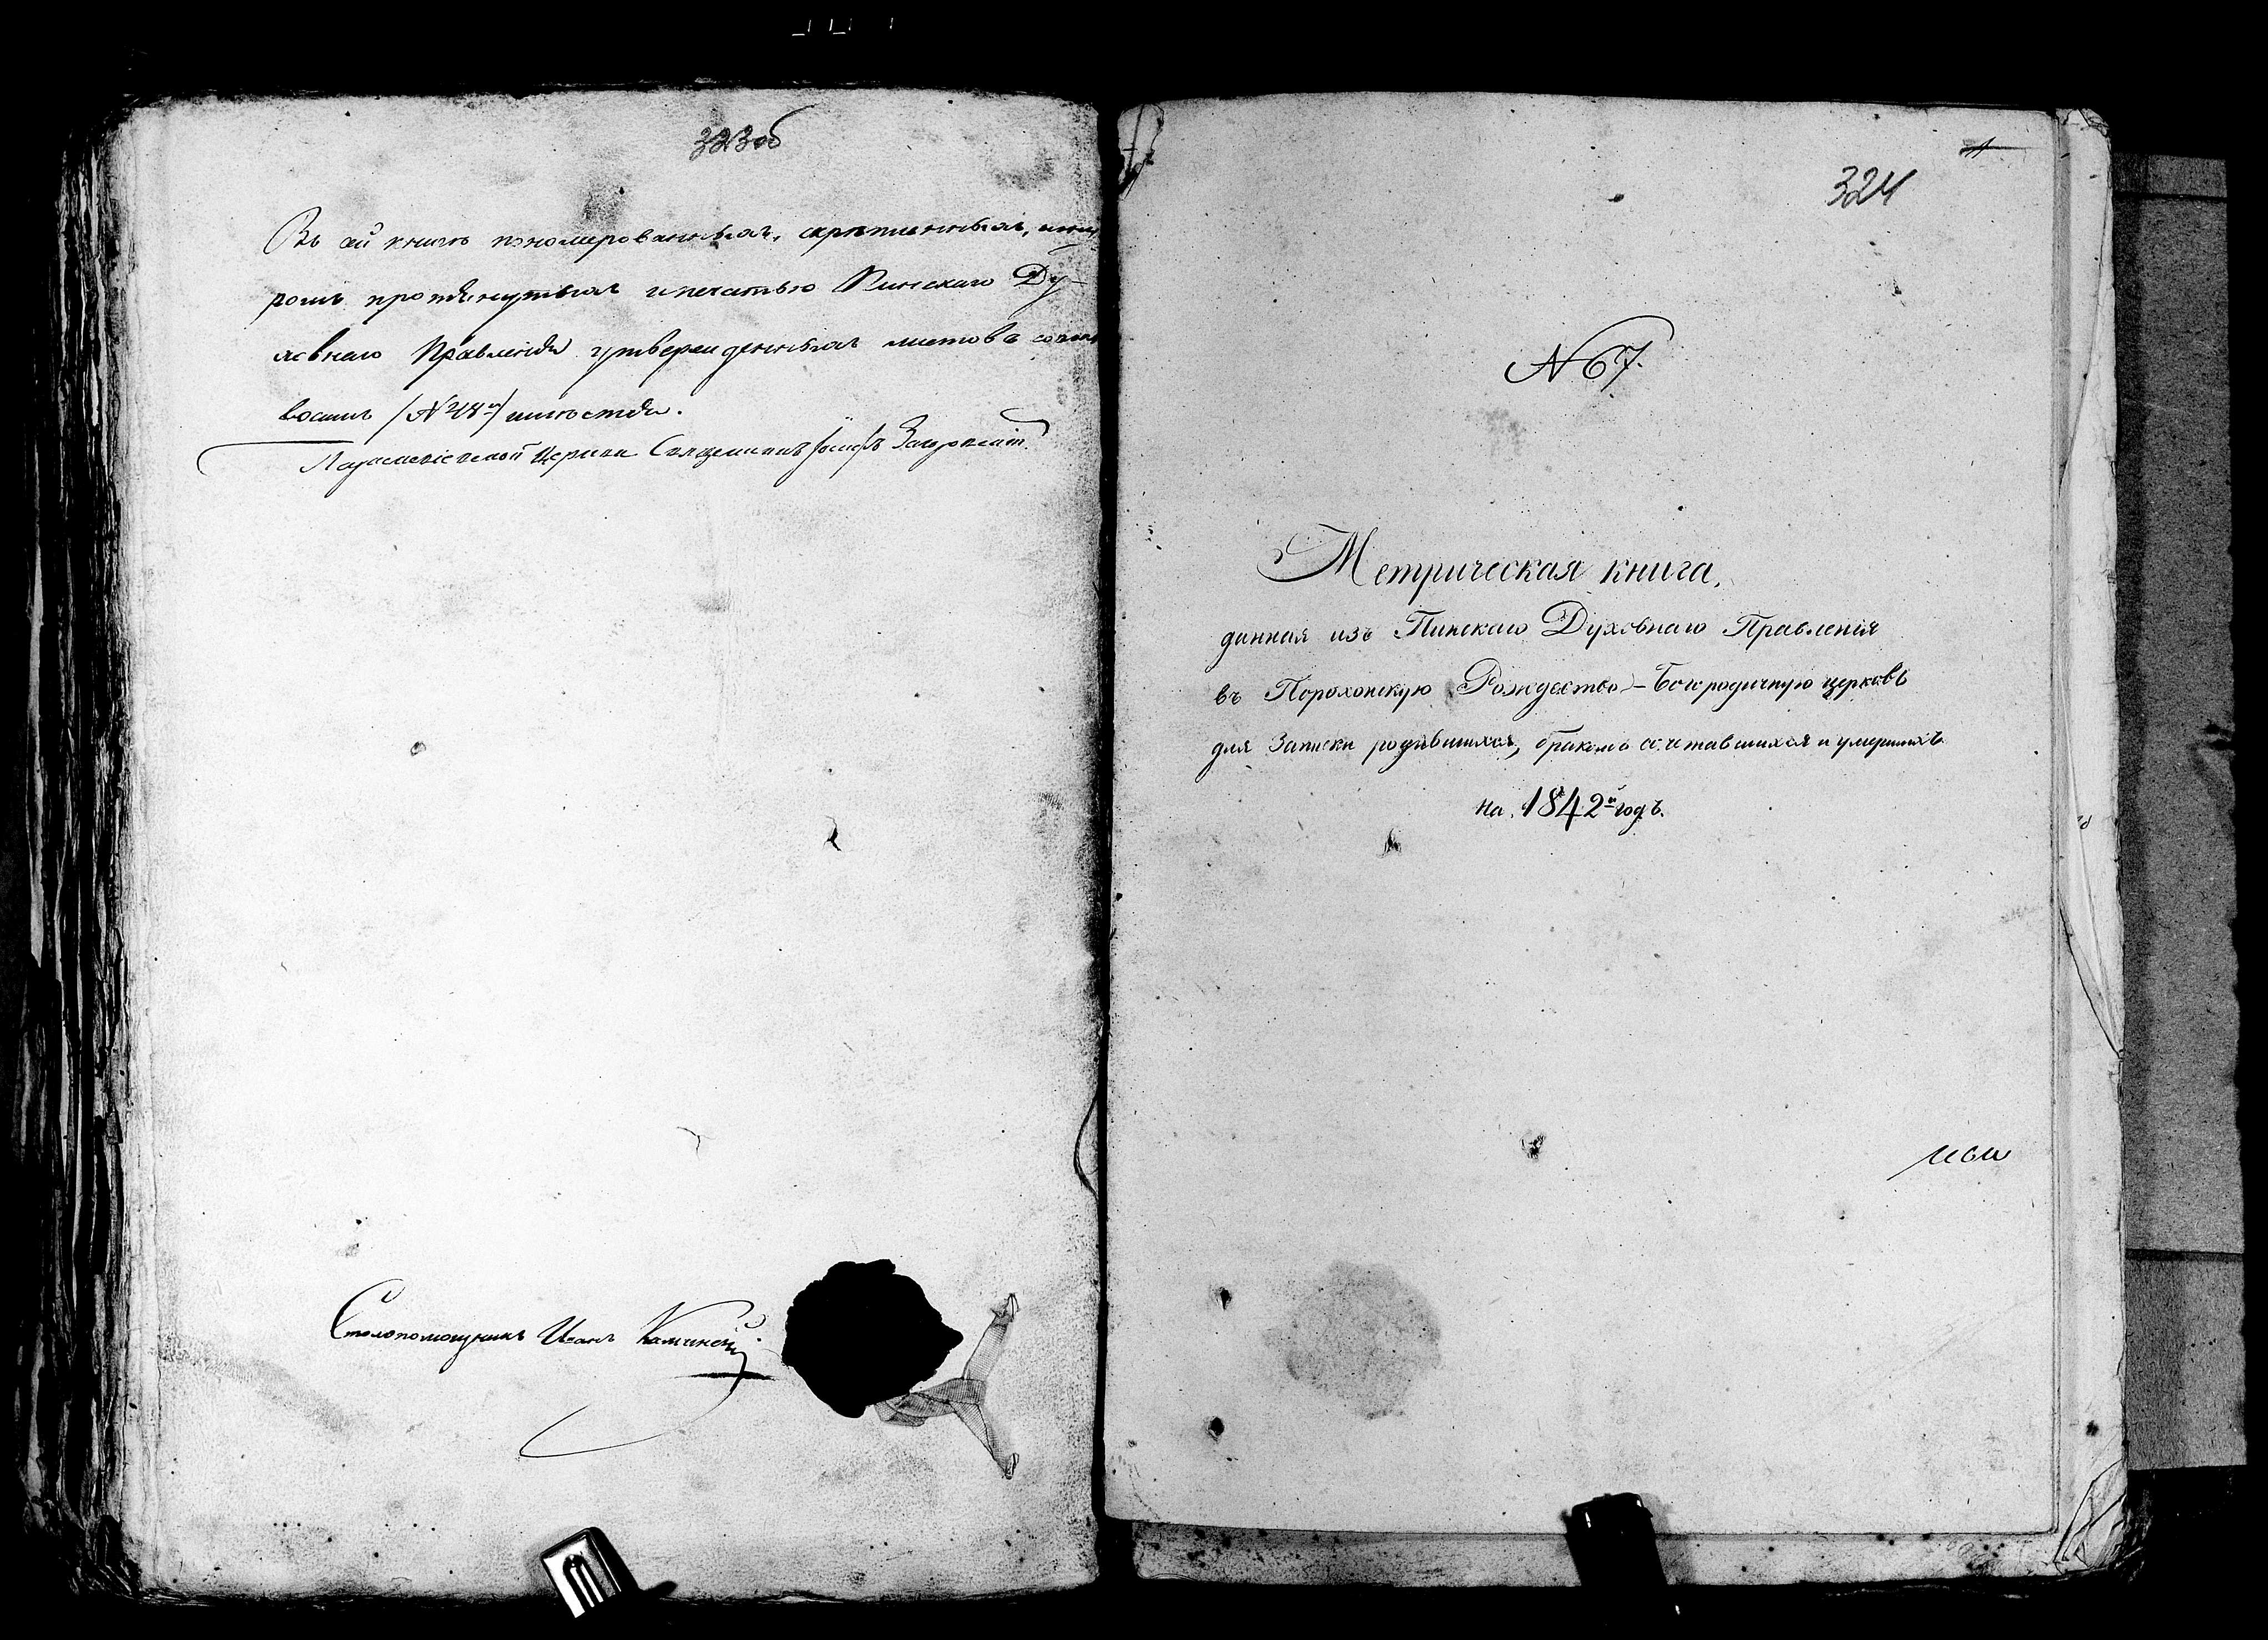 323об
Въ сей книгѣ пономерованныхъ, скрѣпленныхъ,
ромъ протянутыхъ и печатью Пинскаго Ду-
ховнаго Правленія утвержденныхъ листовъ сорокъ
восемь /N 48й/ листовъ.
церкви Священникъ Іосифъ
Столопомощникъ Иванъ Каминскій
1
324
N 67.
Метрическая книга,
данная изъ Пинскаго Духовнаго Правленія
въ Порохонскую Рождество-Богородичную церковь
для записки родившихся, бракомъ сочетавшихся и умершихъ
на 1842й годъ.